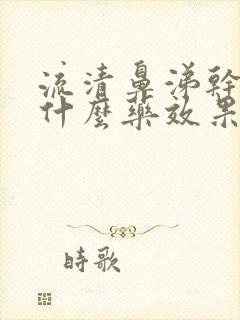 流清鼻涕幹
什麼藥效果
時歌